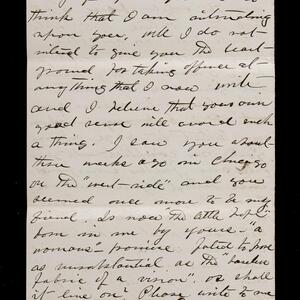 think that I am intruding
upon you. Well I do not
intend to give you the least
ground for taking offence at
anything that I now write
and I believe that your own
good sense will avoid such
a thing. I saw you about
three weeks ago in Chicago
on the "west-side" and you
seemed once more to be my
friend. Is now the little hope
born in me by yours - "a
womans - promise" fated to prove
as unsubstantial as the "baseless
fabric of a vision", or shall
it live on. Please write to me